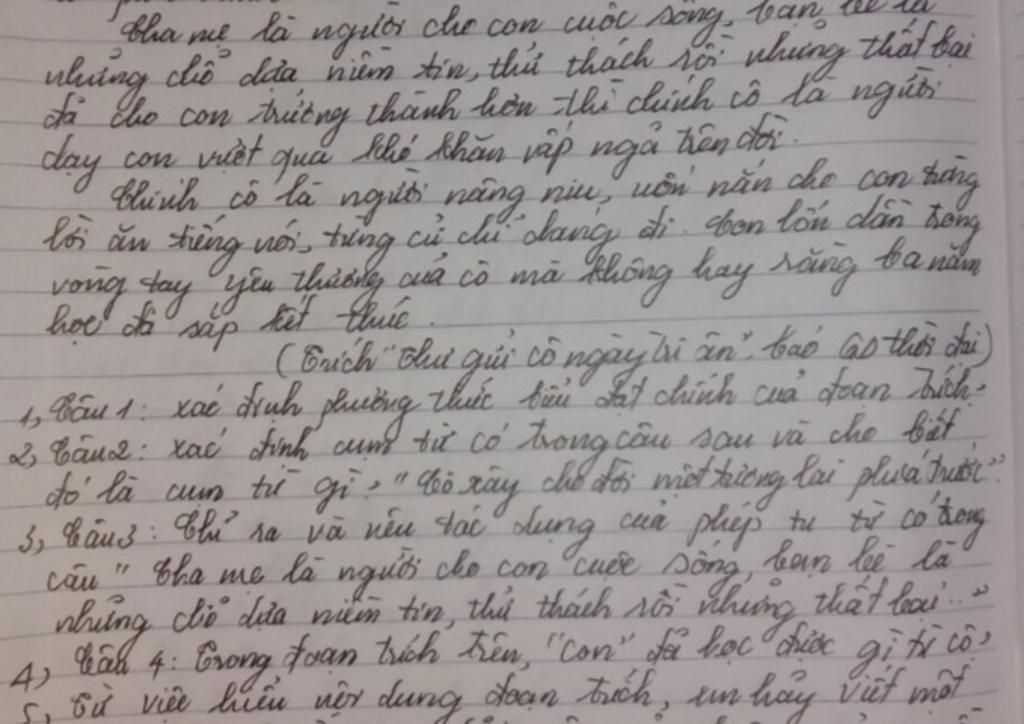 Cha mẹ là người cho con cuộc sống, bạn bè là
những chỗ dựa niềm tin, thử thách rồi những thất bại
đã cho con trưởng thành hơn thì chính cô là người
dạy con vượt qua khó khăn vấp ngã trên đời.
Chính cô là người nâng niu, uốn nắn cho con từng
lời ăn tiếng nói, từng cử chỉ dáng đi. Con lớn dần trong
vòng tay yêu thương của cô mà không hay rằng ba năm
học đã sắp kết thúc.
(Trích "Thư gửi cô ngày tri ân". báo GD thời đại)
1, Câu 1: xác định phương thức biểu đạt chính của đoạn trích.
2, Câu 2: xác định cụm từ có trong câu sau và cho biết
đó là cụm từ gì? "Cô xây cho đời một tương lai phía trước".
3, Câu 3: Chỉ ra và nêu tác dụng của phép tu từ có trong
câu "Cha mẹ là người cho con cuộc sống, bạn bè là
những chỗ dựa niềm tin, thử thách rồi những thất bại..."
4, Câu 4: Trong đoạn trích trên, "con" đã học được gì từ cô?
5, Từ việc hiểu nội dung đoạn trích, em hãy viết một